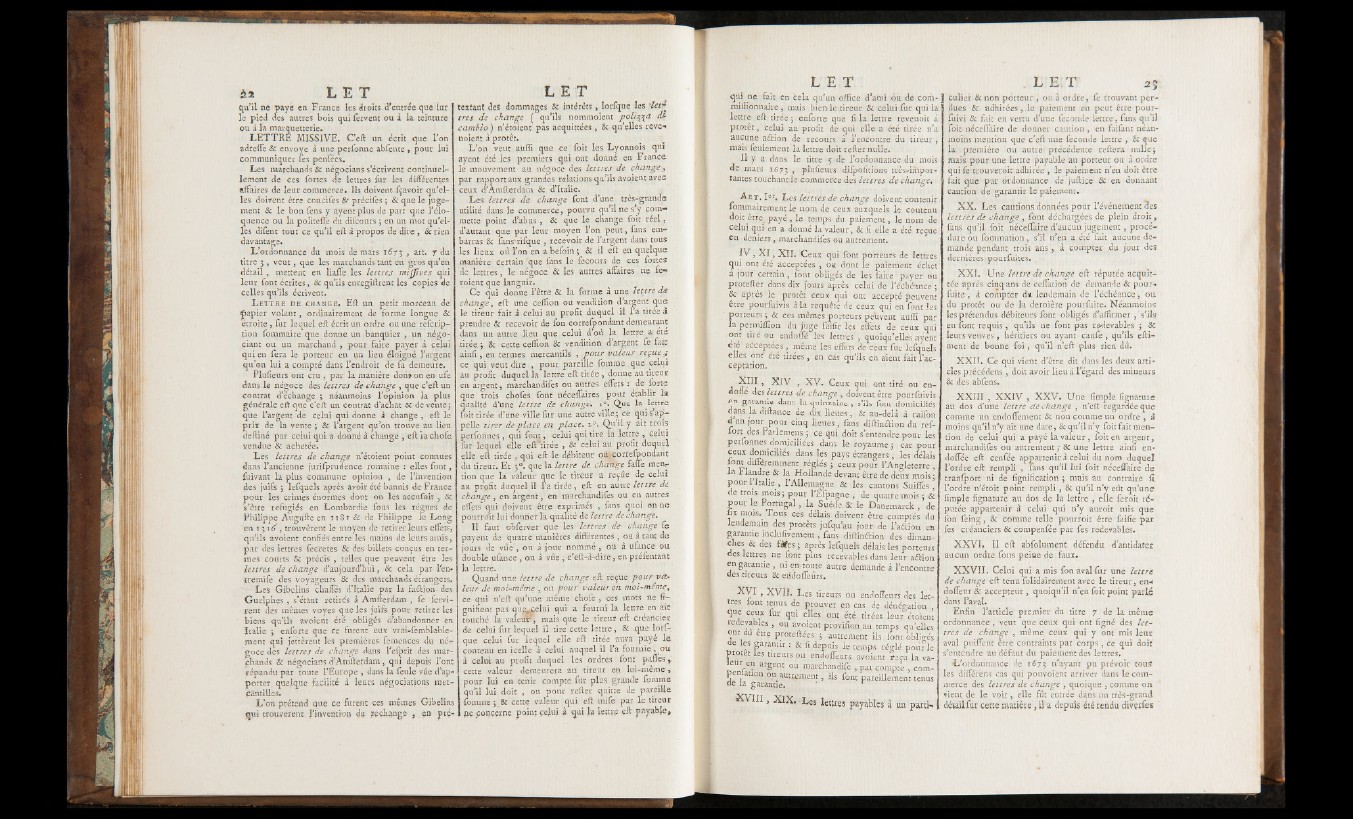 22 LET LET
qu'il ne paye en France les droits d'entrée que ſur
le pied des autres bois qui ſervent ou à la teinture
ou à la marquetterie.
LETTRE MISSIVE. C'eſt un écrit que l'on
adreſſe & envoye à une perſonne abſente, pour lui
communiquer ſes penſées.
Les marchands & négocians s'écrivent continuel-
lement de ces ſortes de lettres ſur les différentes
affaires de leur commerce. Ils doivent ſçavoir qu'el-
les doivent être conciſes & préciſes ; & que le juge-
ment & le bon ſens y ayent plus de part que l'élo-
quence ou la politeſſe du diſcours ; en un mot qu'el-
les diſent tout ce qu'il eſt à propos de dire, & rien
davantage.
L'ordonnance du mois de mars 1673, art. 7 du
titre 3, veut, que les marchands tant en gros qu'en
détail, mettent en liaſſe les lettres miſſives qui
leur ſont écrites, & qu'ils enregiſtrent les copies de
celles qu'ils écrivent.
LETTRE DE CHANGE. Eſt un petit morceau de
papier volant, ordinairement de forme longue &
étroite, ſur lequel eſt écrit un ordre ou une reſcrip-
tion ſommaire que donne un banquier, un négo-
ciant ou un marchand, pour faire payer à celui
qui en ſera le porteur en un lieu éloigné l'argent
qu'on lui a compté dans l'endroit de ſa demeure.
Pluſieurs ont cru, par la manière dont on en uſe
dans le négoce des lettres de change, que c'eſt un
contrat d'échange ; néanmoins l'opinion la plus
générale eſt que c'eſt un contrat d'achat & de vente ;
que l'argent de celui qui donne à change, eſt le
prix de la vente ; & l'argent qu'on trouve au lieu
deſtiné par celui qui a donné à change, eſt la choſe
vendue & achetée.
Les lettres de change n'étoient point connues
dans l'ancienne juriſprudence romaine : elles ſont,
ſuivant la plus commune opinion, de l'invention
des juifs ; leſquels après avoir été bannis de France
pour les crimes énormes dont on les accuſait, &
s'être refugiés en Lombardie ſous les règnes de
Philippe Auguſte en 1181 & de Philippe le Long
en 1316, trouvèrent le moyen de retirer leurs effets,
qu'ils avoient confiés entre les mains de leurs amis,
par des lettres ſecretes & des billets conçus en ter-
mes courts & précis, telles que peuvent être les
lettres de change d'aujourd'hui, & cela par l'en-
tremiſe des voyageurs & des marchands étrangers.
Les Gibelins chaſſés d'Italie par la faction des
Guelphes, s'étant retirés à Amſterdam, ſe ſervi-
rent des mêmes voyes que les juifs pour retirer les
biens qu'ils avoient été obligés d'abandonner en
Italie ; enſorte que ce furent eux vrai-ſemblable-
ment qui jettèrent les premières ſemences du né-
goce des lettres de change dans l'eſprit des mar-
chands & négocians d'Amſterdam, qui depuis l'ont
répandu par toute l'Europe, dans la ſeule vûe d'ap-
porter quelque facilité à leurs négociations mer-
cantilles.
L'on prétend que ce furent ces mêmes Gibelins
qui trouverent l'invention du rechange, en pré-
textant des dommages & intérêts, lorſque les let-
tres de change ( qu'ils nommoient polizza di
cambio ) n'étoient pas acquittées, & qu'elles reve-
noient à protêt.
L'on veut auſſi que ce ſoit les Lyonnois qui
ayent été les premiers qui ont donné en France
le mouvement au négoce des lettres de change,
par rapport aux grandes relations qu'ils avoient avec
ceux d'Amſterdam & d'Italie.
Les lettres de change ſont d'une très-grande
utilité dans le commerce, pourvu qu'il ne s'y com-
mette point d'abus, & que le change ſoit réel,
d'autant que par leur moyen l'on peut, ſans em-
barras & ſans riſque, recevoir de l'argent dans tous
les lieux où l'on en a beſoin ; & il eſt en quelque
manière certain que ſans le ſecours de ces ſortes
de lettres, le négoce & les autres affaires ne fe-
roient que languir.
Ce qui donne l'être & la forme à une lettre de
change, eſt une ceſſion ou vendition d'argent que
le tireur fait à celui au profit duquel il l'a tirée à
prendre & recevoir de ſon correſpondant demeurant
dans un autre lieu que celui d'où la lettre a été
tirée ; & cette ceſſion & vendition d'argent ſe fait
ainſi, en termes mercantils, pour valeur reçue ;
ce qui veut dire, pour pareille ſomme que celui
au profit duquel la lettre eſt tirée, donne au tireur
en argent, marchandiſes ou autres effets : de ſorte
que trois choſes ſont néceſſaires pour établir la
qualité d'une lettre de change. 1°. Que la lettre
ſoit tirée d'une ville ſur une autre ville ; ce qui s'ap-
pelle tirer de place en place. 2°. Qu'il y ait trois
perſonnes, qui ſont, celui qui tire la lettre, celui
ſur lequel elle eſt tirée, & celui au profit duquel
elle eſt tirée, qui eſt le débiteur ou correſpondant
du tireur. Et 3°. que la lettre de change faſſe men-
tion que la valeur que le tireur a reçûe de celui
au profit duquel il l'a tirée, eſt en autre lettre de
change, en argent, en marchandiſes ou en autres
effets qui doivent être exprimés, ſans quoi on ne
pourroit lui donner la qualité de lettre de change.
Il faut obſerver que les lettres de change ſe
payent de quatre manières différentes, ou à tant de
jours de vûe, ou à jour nommé, ou à uſance ou
double uſance, ou à vûe, c'eſt-à-dire, en préſentant
la lettre.
Quand une lettre de change eſt reçue pour va-
leur de moi-même, ou pour valeur en moi-même,
ce qui n'eſt qu'une même choſe, ces mots ne ſi-
gnifient pas que celui qui a fourni la lettre en ait
touché la valeur, mais que le tireur eſt créancier
de celui ſur lequel il tire cette lettre, & que lorſ-
que celui ſur lequel elle eſt tirée aura payé le
contenu en icelle à celui auquel il l'a fournie, ou
à celui au profit duquel les ordres ſont paſſés,
cette valeur demeurera au tireur en lui-même,
pour lui en tenir compte ſur plus grande ſomme
qu'il lui doit, ou pour reſter quitte de pareille
ſomme ; & cette valeur qui eſt miſe par le tireur
ne concerne point celui à qui la lettre eſt payable,
LET LET 23
qui ne fait en cela qu'un office d'ami ou de com-
miſſionnaire, mais bien le tireur & celui ſur qui la
lettre eſt tirée ; enſorte que ſi la lettre revenoit à
protêt, celui au profit de qui elle a été tirée n'a
aucune action de recours à l'encontre du tireur,
mais ſeulement la lettre doit reſter nulle.
Il y a dans le titre 5 de l'ordonnance du mois
de mars 1673, pluſieurs diſpoſitions très-impor-
tantes touchant le commerce des lettres de change.
ART. Ier. Les lettres de change doivent contenir
ſommairement le nom de ceux auxquels le contenu
doit être payé, le temps du paiement, le nom de
celui qui en a donné la valeur, & ſi elle a été reçue
en deniers, marchandiſes ou autrement.
IV, XI, XII. Ceux qui ſont porteurs de lettres
qui ont été acceptées, ou dont le paiement échet
à jour certain, ſont obligés de les faire payer ou
proteſter dans dix jours après celui de l'échéance ;
& après le protêt ceux qui ont accepté peuvent
être pourſuivis à la requête de ceux qui en ſont les
porteurs ; & ces mêmes porteurs peuvent auſſi par
la permiſſion du juge ſaiſir les effets de ceux qui
ont tiré ou endoſſé les lettres, quoiqu'elles ayent
été acceptées, même les effets de ceux ſur leſquels
elles ont été tirées, en cas qu'ils en aient fait l'ac-
ceptation.
XIII, XIV, XV. Ceux qui ont tiré ou en-
doſſé des lettres de change, doivent être pourſuivis
en garantie dans la quinzaine, s'ils ſont domiciliés
dans la diſtance de dix lieues, & au-delà à raiſon
d'un jour pour cinq lieues, ſans diſtinction du reſ-
ſort des Parlemens ; ce qui doit s'entendre pour les
perſonnes domiciliées dans le royaume ; car pour
ceux domiciliés dans les pays étrangers, les délais
ſont différemment réglés ; ceux pour l'Angleterre,
la Flandre & la Hollande devant être de deux mois ;
pour l'Italie, l'Allemagne & les cantons Suiſſes,
de trois mois ; pour l'Eſpagne, de quatre mois ; &
pour le Portugal, la Suède & le Danemarck, de
ſix mois. Tous ces délais doivent être comptés du
lendemain des protêts juſqu'au jour de l'action en
garantie incluſivement, ſans diſtinction des diman-
ches & des fêtes ; après leſquels délais les porteurs
des lettres ne ſont plus recevables dans leur action
en garantie, ni en toute autre demande à l'encontre
des tireurs & endoſſeurs.
XVI, XVII. Les tireurs ou endoſſeurs des let-
tres ſont tenus de prouver en cas de dénégation,
que ceux ſur qui elles ont été tirées leur étoient
redevables, ou avoient proviſion au temps qu'elles
ont dû être proteſtées ; autrement ils ſont obligés
de les garantir : & ſi depuis le temps réglé pour le
protêt les tireurs ou endoſſeurs avoient reçu la va-
leur en argent ou marchandiſe, par compte, com-
penſation ou autrement, ils ſont pareillement tenus
de la garantie.
XVIII, XIX. Les lettres payables à un parti-
culier & non porteur, ou à ordre, ſe trouvant per-
dues & adhirées, le paiement en peut être pour-
ſuivi & fait en vertu d'une ſeconde lettre, ſans qu'il
ſoit néceſſaire de donner caution, en faiſant néan-
moins mention que c'eſt une ſeconde lettre, & que
la première ou autre précédente reſtera nulle ;
mais pour une lettre payable au porteur ou à ordre
qui ſe trouveroit adhirée, le paiement n'en doit être
fait que par ordonnance de juſtice & en donnant
caution de garantir le paiement.
XX. Les cautions données pour l'événement des
lettres de change, ſont déchargées de plein droit,
ſans qu'il ſoit néceſſaire d'aucun jugement, procé-
dure ou ſommation, s'il n'en a été fait aucune de-
mande pendant trois ans, à compter du jour des
dernières pourſuites.
XXI. Une lettre de change eſt réputée acquit-
tée après cinq ans de ceſſation de demande & pour-
ſuite, à compter du lendemain de l'échéance, ou
du protêt ou de la dernière pourſuite. Néanmoins
les prétendus débiteurs ſont obligés d'affirmer, s'ils
en ſont requis, qu'ils ne ſont pas redevables ; &
leurs veuves, héritiers ou ayant cauſe, qu'ils eſti-
ment de bonne foi, qu'il n'eſt plus rien dû.
XXII. Ce qui vient d'être dit dans les deux arti-
cles précédens, doit avoir lieu à l'égard des mineurs
& des abſens.
XXIII, XXIV, XXV. Une ſimple ſignature
au dos d'une lettre de change, n'eſt regardée que
comme un endoſſement & non comme un ordre, à
moins qu'il n'y ait une date, & qu'il n'y ſoit fait men-
tion de celui qui a payé la valeur, ſoit en argent,
marchandiſes ou autrement ; & une lettre ainſi en-
doſſée eſt cenſée appartenir à celui du nom duquel
l'ordre eſt rempli, ſans qu'il lui ſoit néceſſaire de
tranſport ni de ſignification ; mais au contraire ſi
l'ordre n'étoit point rempli, & qu'il n'y eût qu'une
ſimple ſignature au dos de la lettre, elle ſeroit ré-
putée appartenir à celui qui n'y auroit mis que
ſon ſeing, & comme telle pourroit être ſaiſie par
ſes créanciers & compenſée par ſes redevables.
XXVI. Il eſt abſolument défendu d'antidater
aucun ordre ſous peine de faux.
XXVII. Celui qui a mis ſon aval ſur une lettre
de change eſt tenu ſolidairement avec le tireur, en-
doſſeur & accepteur, quoiqu'il n'en ſoit point parlé
dans l'aval.
Enfin l'article premier du titre 7 de la même
ordonnance, veut que ceux qui ont ſigné des let-
tres de change, même ceux qui y ont mis leur
aval puiſſent être contraints par corps, ce qui doit
s'entendre au défaut du paiement des lettres.
L'ordonnance de 1673 n'ayant pu prévoir tous
les différens cas qui pouvoient arriver dans le com-
merce des lettres de change, quoique, comme on
vient de le voir, elle fût entrée dans un très-grand
détail ſur cette matière, il a depuis été rendu diverſes